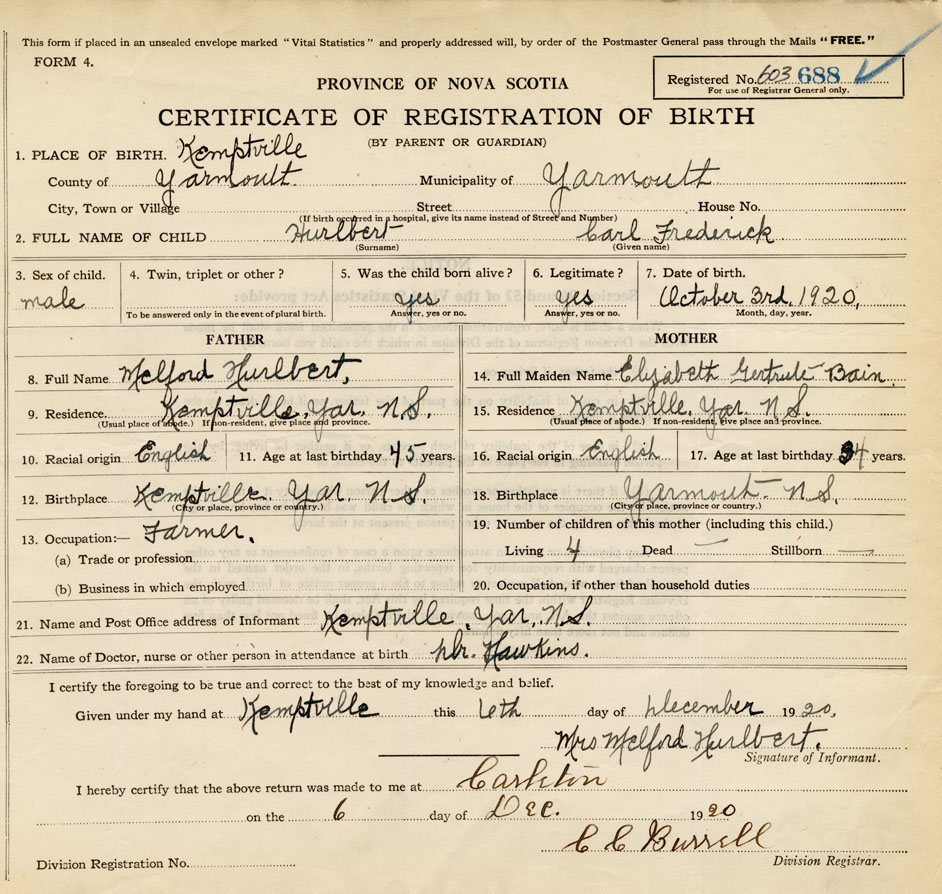 This form if placed in an unsealed envelope marked "Vital Statistics" and properly addressed will, by order of the Postmaster General pass through the Mails "FREE."
FORM 4.
Registered No. 603 688
For use of Registrar General only.
PROVINCE OF NOVA SCOTIA
CERTIFICATE OF REGISTRATION OF BIRTH
(BY PARENT OR GUARDIAN)
1. PLACE OF BIRTH. Kemptville
County of Yarmouth Municipality of Yarmouth
City, Town or Village Street House No.
(If birth occurred in a hospital, give its name instead of Street and Number)
2. FULL NAME OF CHILD Hurlbert Carl Frederick
(Surname) (Given name)
3. Sex of child. 4. Twin, triplet or other? 5. Was the child born alive? 6. Legitimate? 7. Date of birth.
male yes yes October 3rd. 1920,
To be answered only in the event of plural birth. Answer, yes or no. Answer, yes or no. Month, day, year.
FATHER MOTHER
8. Full Name Melford Hurlbert, 14. Full Maiden Name Elizabeth Gertrude Bain.
9. Residence Kemptville, Yar. N.S. 15. Residence Kemptville, Yar. N.S.
(Usual place of abode.) If non-resident, give place and province. (Usual place of abode.) If non-resident, give place and province.
10. Racial origin English 11. Age at last birthday 45 years. 16. Racial origin English 17. Age at last birthday 34 years.
12. Birthplace Kemptville. Yar N.S. 18. Birthplace Yarmouth N.S.
(City or place, province or country.) (City or place, province or country.)
13. Occupation:— Farmer. 19. Number of children of this mother (including this child.)
(a) Trade or profession Living 4 Dead — Stillborn —
(b) Business in which employed 20. Occupation, if other than household duties
21. Name and Post Office address of Informant Kemptville, Yar, N.S.
22. Name of Doctor, nurse or other person in attendance at birth Dr. Hawkins.
I certify the foregoing to be true and correct to the best of my knowledge and belief.
Given under my hand at Kemptville this 6th day of December 1920,
Mrs Melford Hurlbert.
Signature of Informant.
I hereby certify that the above return was made to me at Carleton
on the 6 day of Dec. 1920
C C Burrell
Division Registration No. Division Registrar.